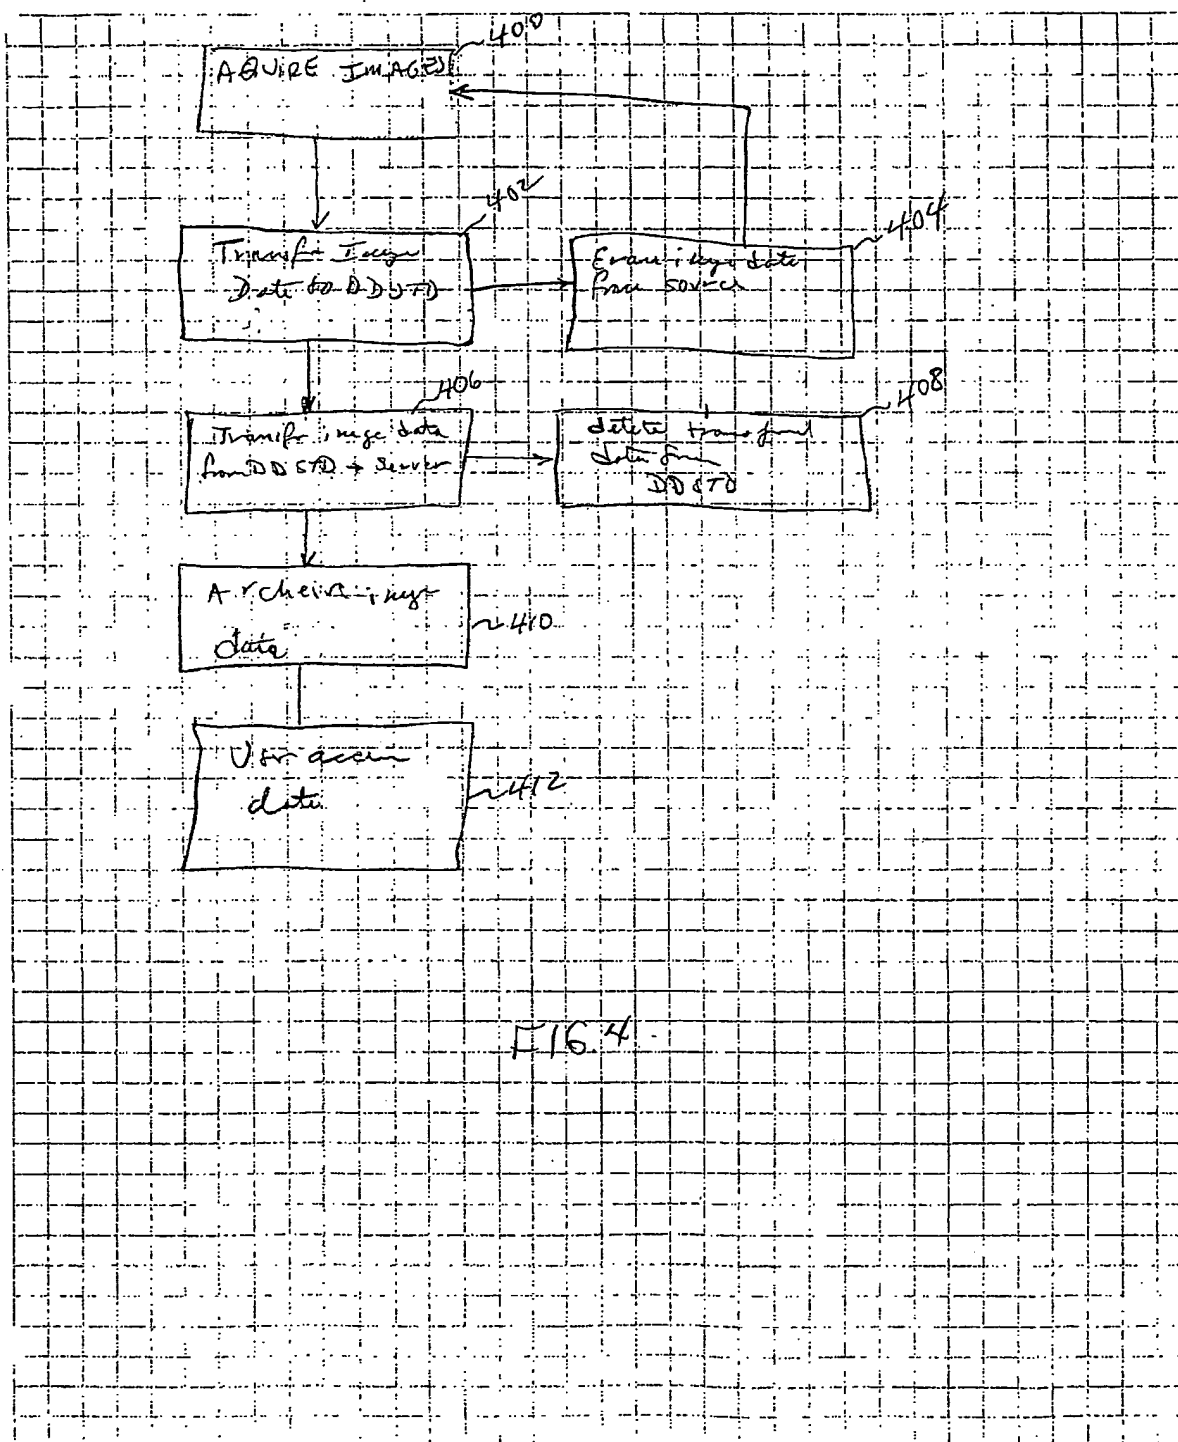 400
AQUIRE IMAGES
402
Transfer Image
Data to DDSTD
404
Erase image data
from source
406
Transfer image data
from DDSTD → Server
408
delete transferred
data from
DDSTD
Archive image
data
410
User access
data
412
FIG. 4